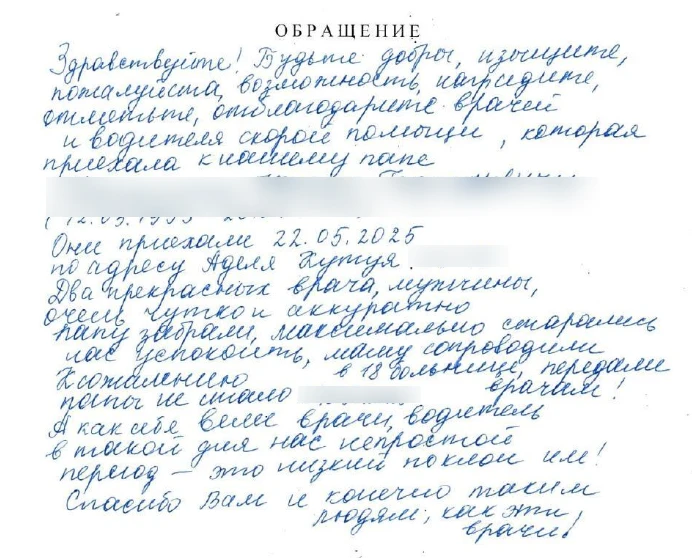 ОБРАЩЕНИЕ
Здравствуйте! Будьте добры, изыщите,
пожалуйста, возможность, наградите,
отметьте, отблагодарите врачей
и водителя скорой помощи, которая
приехала к нашему папе
Они приехали 22.05.2025
по адресу Аделя Кутуя
Два прекрасных врача, мужчины,
очень чутко и аккуратно
папу забрали, максимально старались
нас успокоить, маму сопроводили
К сожалению в 18 больнице, передали
папы не стало врачам!
А как себя вели врачи, водитель
в такой для нас непростой
период – это низкий поклон им!
Спасибо Вам и конечно таким
людям, как эти
врачи!